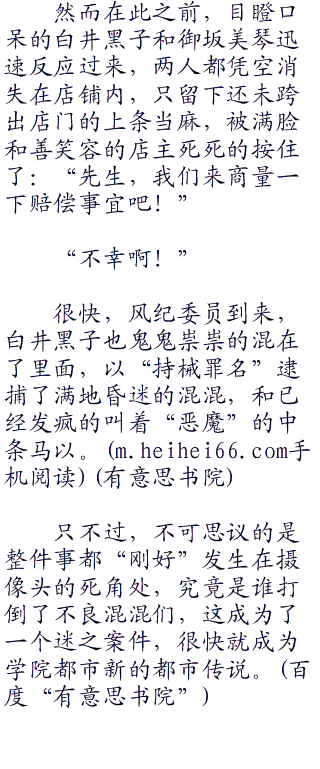 然而在此之前，目瞪口
呆的白井黑子和御坂美琴迅
速反应过来，两人都凭空消
失在店铺内，只留下还未跨
出店门的上条当麻，被满脸
和善笑容的店主死死的按住
了：“先生，我们来商量一
下赔偿事宜吧！”
“不幸啊！”
很快，风纪委员到来，
白井黑子也鬼鬼祟祟的混在
了里面，以“持械罪名”逮
捕了满地昏迷的混混，和已
经发疯的叫着“恶魔”的中
条马以。(m.heihei66.com手
机阅读)(有意思书院)
只不过，不可思议的是
整件事都“刚好”发生在摄
像头的死角处，究竟是谁打
倒了不良混混们，这成为了
一个迷之案件，很快就成为
学院都市新的都市传说。(百
度“有意思书院”)